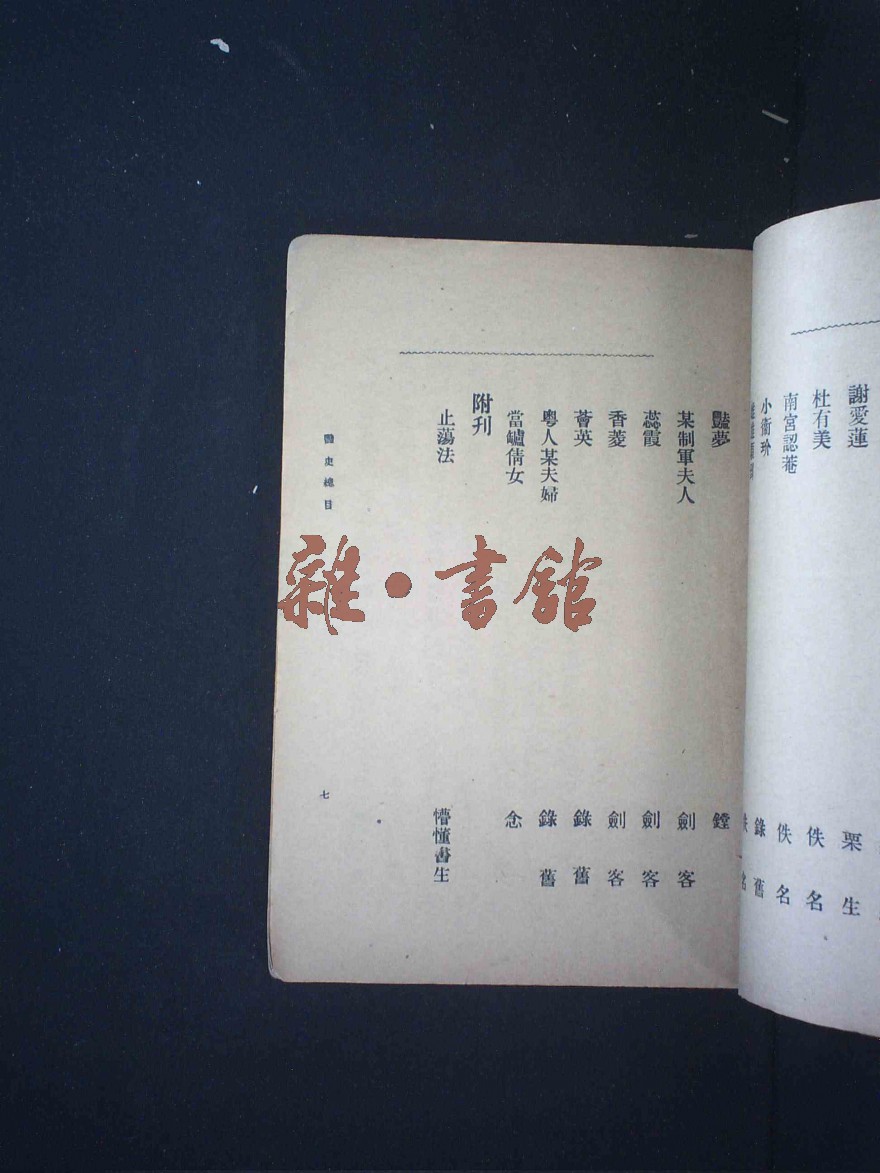 謝愛蓮 栗生
杜有美 佚名
南宮認菴 佚名
小衞玠 錄舊
豔夢 鏜
某制軍夫人 劍客
蕊霞 劍客
香菱 劍客
薈英 錄舊
粵人某夫婦 錄舊
當罏倩女 念
附刋
止蕩法 懵懂書生
豔史總目
七
雜·書館